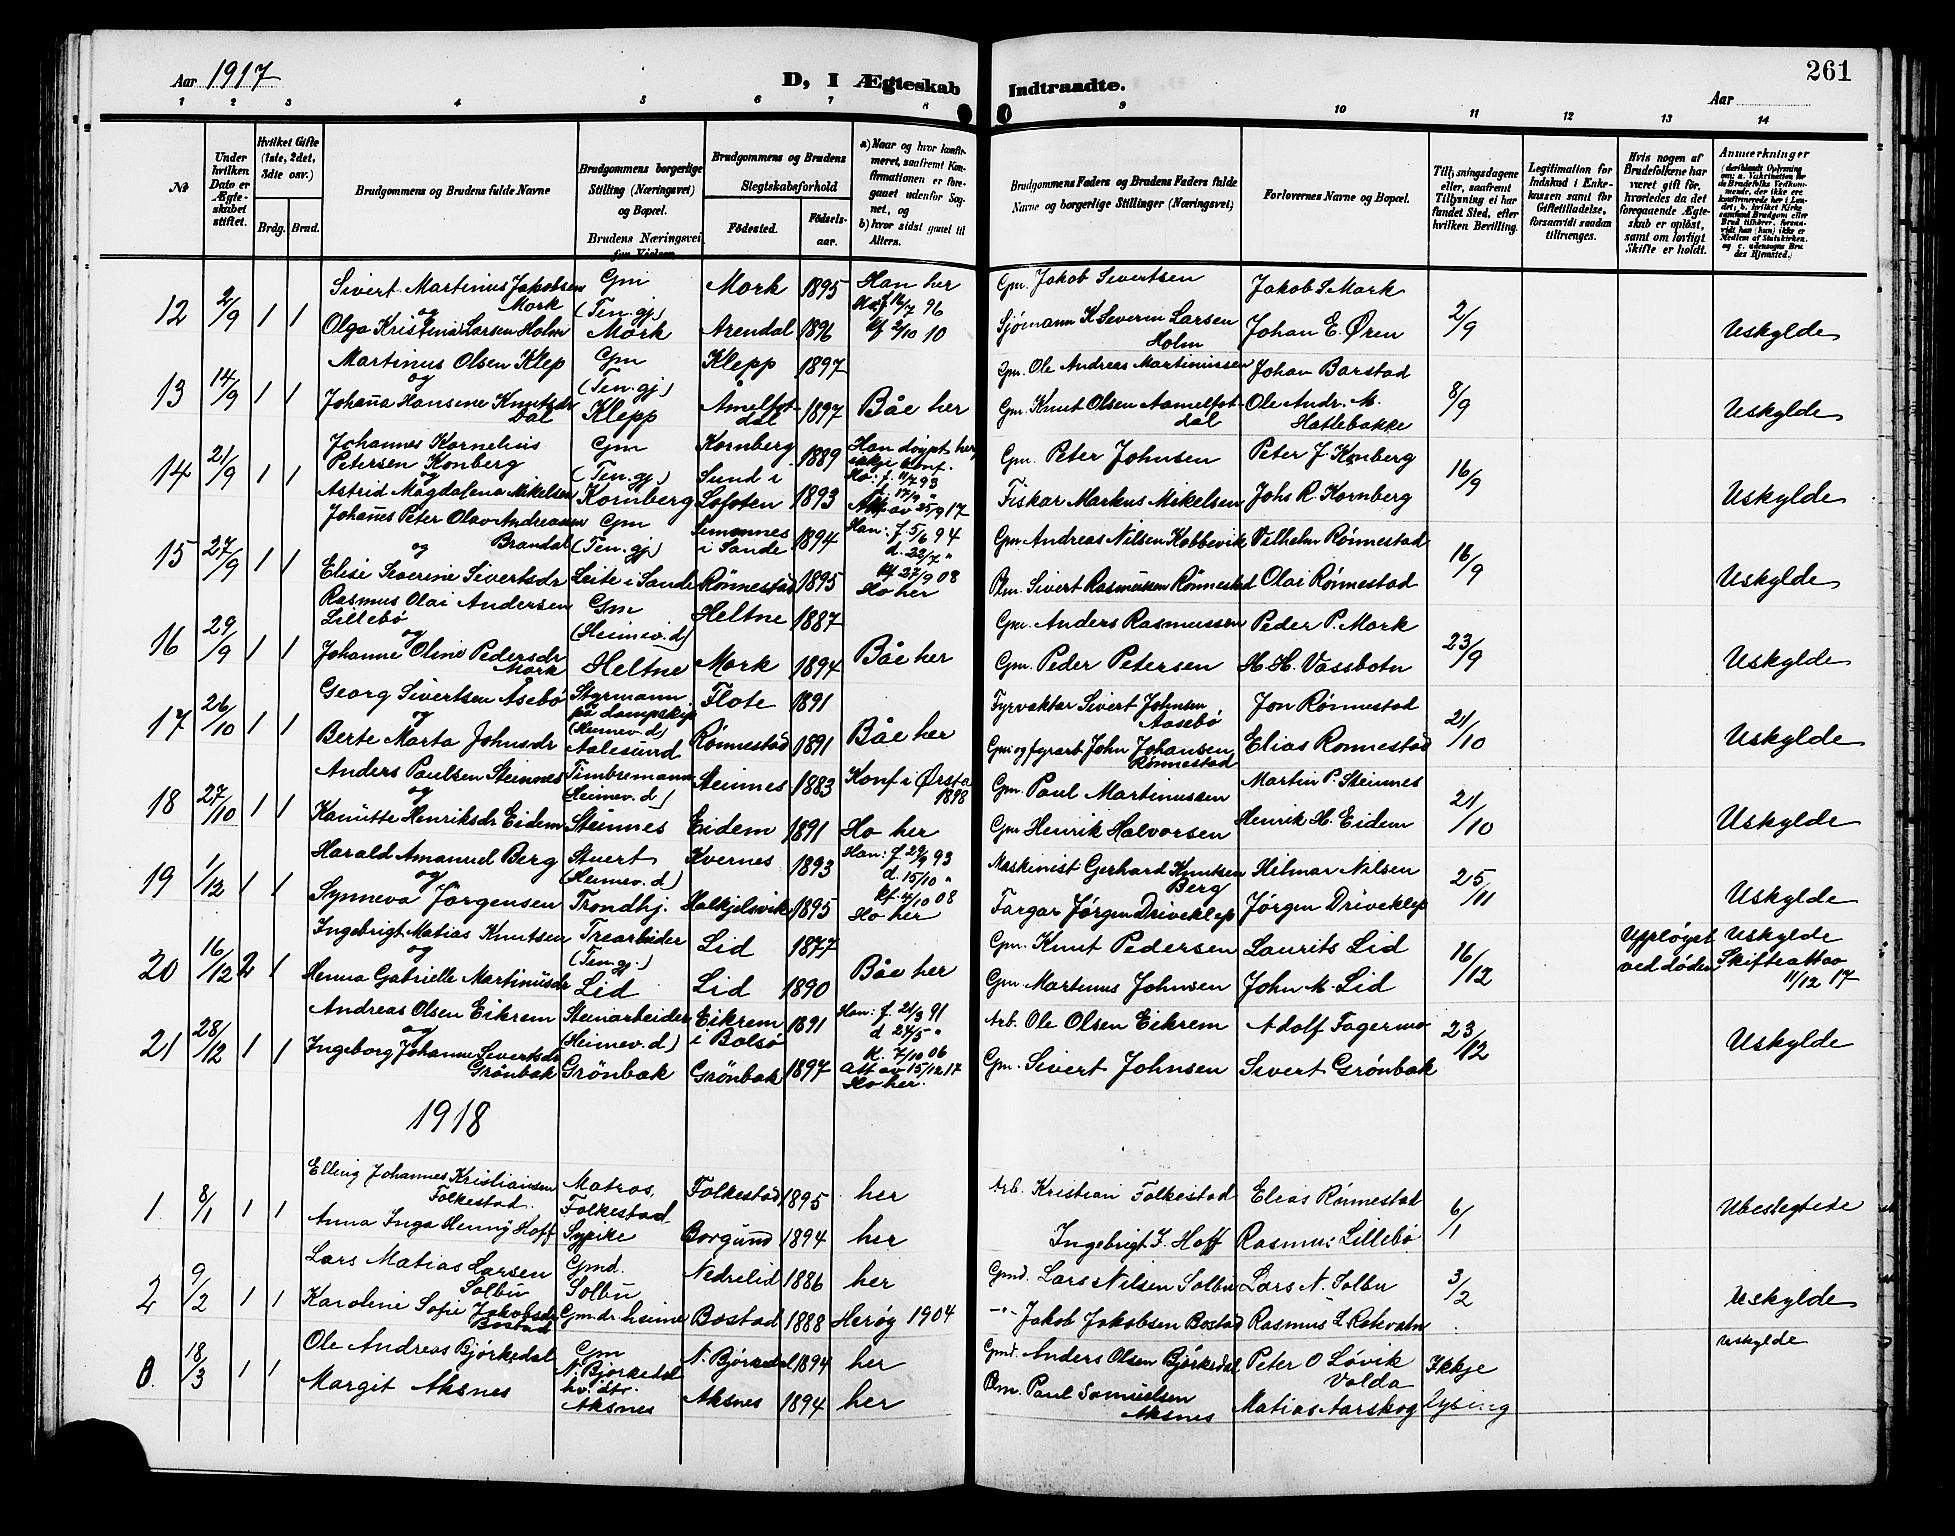 261
Aar 1917
D, I Ægteskab Indtraadte.
Aar
1 2 3 4 5 6 7 8 9 10 11 12 13 14
No
Under hvilken Dato er Ægteskabet stiftet.
Hvilket Gifte (1ste, 2det, 3die osv.)
Brdg. Brud.
Brudgommens og Brudens fulde Navne
Brudgommens borgerlige Stilling (Næringsvei) og Bopæl.
Brudens Næringsvei før Vielsen
Brudgommens og Brudens Slegtskabsforhold
Fødested. Fødselsaar.
a) Naar og hvor konfirmeret, saafremt Konfirmationen er foregaaet udenfor Sognet, og b) hvor sidst gaaet til Alters.
Brudgommens Faders og Brudens Faders fulde Navne og borgerlige Stillinger (Næringsvei)
Forlovernes Navne og Bopæl.
Tillysningsdagene eller, saafremt Tillysning ei har fundet Sted, efter hvilken Bevilling.
Legitimation for Indskud i Enkekassen samt for Giftetilladelse, forsaavidt saadan tiltrænges.
Hvis nogen af Brudefolkene har været gift før, hvorledes da det foregaaende Ægteskab er opløst, samt om lovligt Skifte er holdt.
Anmerkninger
12 2/9 1 1 Sivert Martinus Jakobsen Mork Gm Mork 1895 Han her Gm. Jakob Sivertsen Jakob S Mork 2/9 Uskylde
og (Ten.gj)
Olga Kristina Larsen Holm Mork Arendal 1896 Ho f 12/7 96 kf 2/10 10 Sjømann K Severin Larsen Holm Johan E. Øren
13 14/9 1 1 Martinus Olsen Klep Gm Klepp 1897 Gm. Ole Andreas Martinussen Johan Barstad 8/9 Uskylde
og (Ten.gj)
Johana Hansine Knutsdr Dal Klepp Åmelfotdal 1897 Båe her Gm. Knut Olsen Aamelfotdal Ole Andr. M. Hatlebakke
14 21/9 1 1 Johannes Kornelius Petersen Konberg Gm Kornberg 1889 Han døypt her ikkje konf. Gm. Peter Johnsen Peter J. Konberg 16/9 Uskylde
og (Ten.gj)
Astrid Magdalena Mikelsen Kornberg Sund i Lofoten 1893 Ho: f. 11/7 93 17/9 " Att av 25/9 17 Fiskar Markus Mikelsen Johs R. Kornberg
15 27/9 1 1 Johanes Peter Olav Andreassen Brandal Gm Simonnes i Sande 1894 Han: f. 5/6 94 d. 22/7 " kf 27/9 08 Gm Andreas Nilsen Kobbevik Vilhelm Rønnestad 16/9 Uskylde
og (Ten.gj)
Elise Severine Sivertsdr Leite i Sande Rønnestad 1895 Ho her Sivert Rasmussen Rønnestad Olai Rønnestad
16 29/9 1 1 Rasmus Olai Andersen Lillebö Gm Heltne 1887 Gm. Anders Rasmussen Peder P. Mork 23/9 Uskylde
og (Heimev.d)
Johanne Oline Pedersdr Mork Heltne Mork 1894 Båe her Gm. Peder Petersen H. H. Vassbotn
17 26/10 1 1 Georg Sivertsen Åsebö Styrmann på Dampskip Flote 1891 Fyrvaktar Sivert Johnsen Aasebö Jon Rønnestad 21/10 Uskylde
og (Heimev.d)
Berte Marta Johnsdr Aalesund Rønnestad 1891 Båe her Gm og fyrarb John Johansen Rønnestad Elias Ronnestad
18 27/10 1 1 Anders Paulsen Steinnes Timbremann Steinnes 1883 Konf i Ørsta 1898 Gm. Paul Martinussen Martin P. Steinnes 21/10 Uskylde
og (Heimev.d)
Kanutte Henriksdr Eidem Steinnes Eidem 1891 Ho her Gm Henrik Halvorsen Henrik H. Eidem
19 1/12 1 1 Harald Amanuel Berg Stuert Kvernes 1893 Han: f 29/9 93 d. 15/10 " kf. 4/10 08 Maskinist Gerhard Knutsen Berg Hilmar Nilsen 25/11 Uskylde
og (Heimev.d)
Synneva Jörgensen Trondhj. Halkjelsvik 1895 Ho her Fargar Jørgen Driveklep Jørgen Driveklep
20 16/12 2 1 Ingebrigt Matias Knutsen Trearbeider Lid 1877 Gm. Knut Pedersen Laurits Lid 16/12 Uppløyst ved døden Uskylde Skifteattao 11/12 17
og (Ten.gj.)
Henna Gabrielle Martinusdr Lid Lid 1890 Båe her Gm Martinus Johnsen John M. Lid
21 28/12 1 1 Andreas Olsen Eikrem Steinarbeider Eikrem i Bolsö 1891 Han: f. 21/3 91 d 24/5 " K. 7/10 06 Att av 15/12 17 Arb. Ole Olsen Eikrem Adolf Fagermo 23/12 Uskylde
og (Heimev.d)
Ingeborg Johanne Sivertsdr Grönbak Grönbak Grönbak 1897 Ho her. Gm. Sivert Johnsen Sivert Grönbak
1918
1. 8/1 1 1 Elling Johannes Kristiansen Folkestad. Matros, Folkestad Folkestad 1895 her Arb. Kristian Folkestad Elias Rønnestad 6/1 Ubeslegtede
Anna Inga Henny Hoff Sypike Borgund 1894 her Ingebrigt I. Hoff Rasmus Lillebö
2 9/2 1 1 Lars Matias Larsen Solbu Gmd. Solbu Nedrelid 1886 her Gmd. Lars Nilsen Solbu Lars N. Solbu 3/2 Uskylde
Karoline Sofie Jakobsdr Bostad Gmdr. heime Bostad 1888 Herøy 1904 -"- Jakob Jakobsen Bostad Rasmus L Rotevatn
18/3 1 1 Ole Andreas Bjørkedal Gm N. Bjørkedal N. Bjørkedal 1894 her Gmd. Anders Olsen Bjørkedal Peter O Løvik Volda Ikkje lysing uskylde
Margit Aksnes Aksnes Aksnes 1894 her Paul Samuelsen Aksnes Matias Aarskog